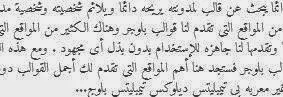 ائما يبحث عن قالب لمدونته يريحه دائما ويلائم شخصيته وشخصية مد
من المواقع التى تقدم لنا قوالب بلوجر وهناك الكثير من المواقع التى
وتقدمها لنا جاهزه للإستخدام بدون بذل أى مجهود . ومع هذه ال
لب بلوجر فستجد هنا أهم المواقع التى تقدم لك أجمل القوالب دو
غير معربه لى تيمبليتس ديلوكس تيمبليتس بلوج...